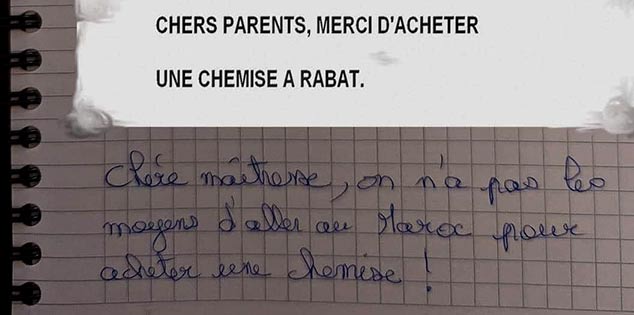 CHERS PARENTS, MERCI D'ACHETER
UNE CHEMISE A RABAT.
Chère maîtresse, on n'a pas les
moyens d'aller au Maroc pour
acheter une chemise !